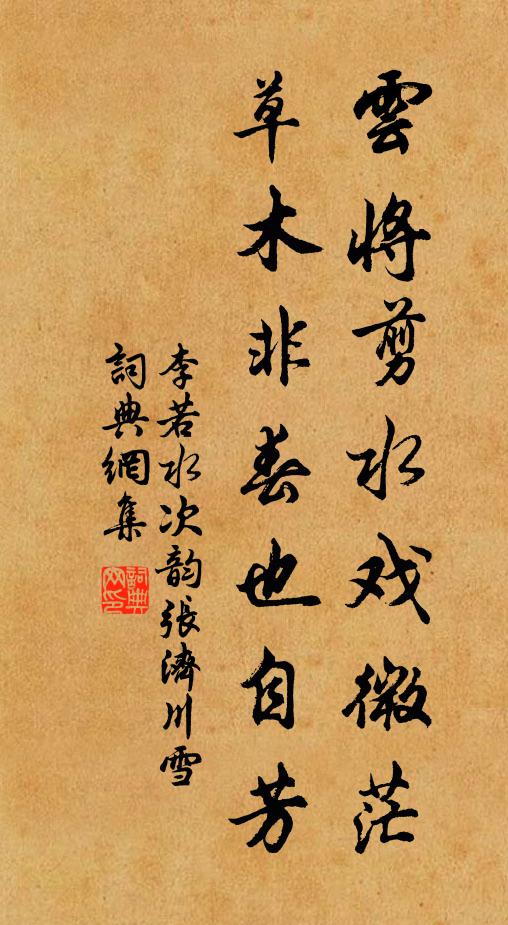 雲將剪水戏微茫
草木非春也自芳
李若水次韵張濟川雪
詞典網集
詞典网印